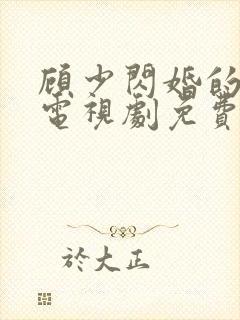 顾少閃婚的
電視劇免費
於大正